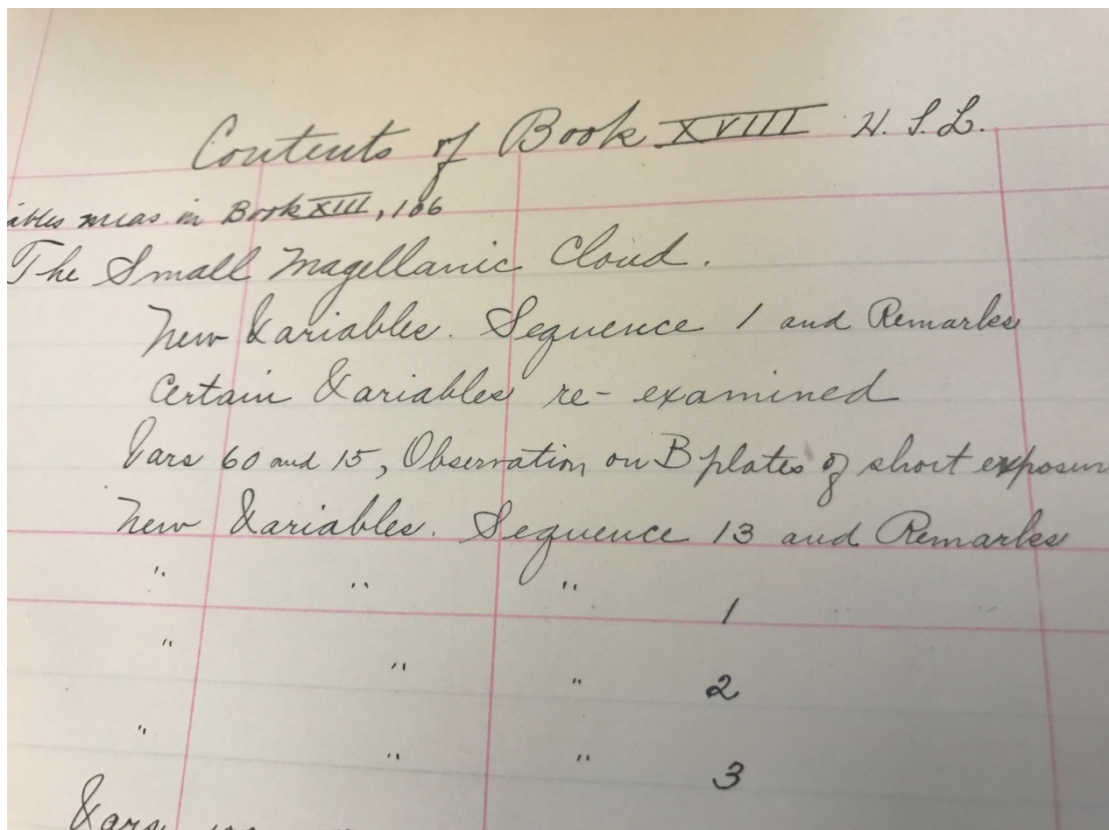 Contents of Book XVIII H. S. L.
meas. in Book XIII, 106
The Small Magellanic Cloud.
New Variables. Sequence 1 and Remarks
Certain Variables re-examined
Vars 60 and 15, Observation on B plates of short
New Variables. Sequence 13 and Remarks
" " " 1 " "
" " " 2
" " " 3
Vars